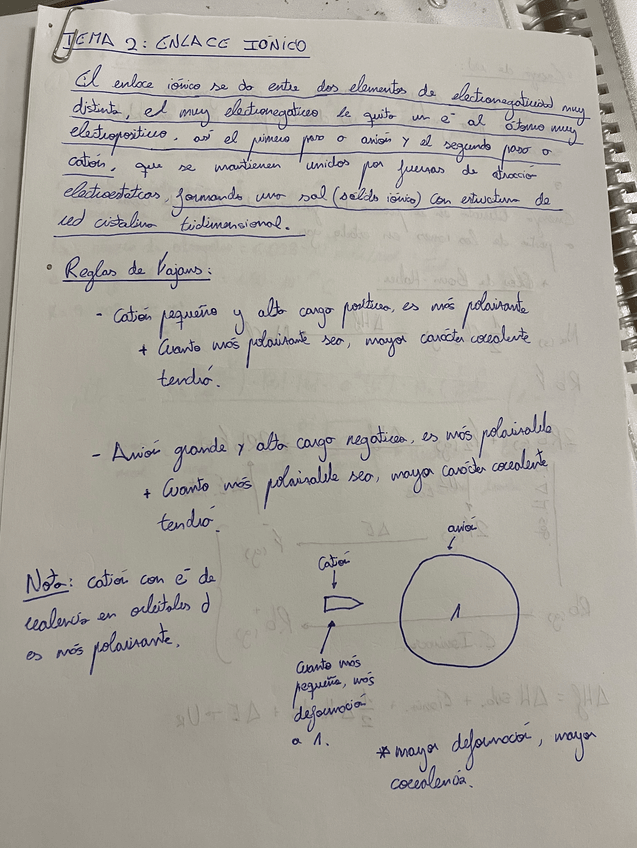 TEMA 2: ENLACE IÓNICO
El enlace iónico se da entre dos elementos de electronegatividad muy
distinta, el muy electronegativo le quita un e⁻ al átomo muy
electropositivo. así el primero pasa a anión y el segundo pasa a
catión, que se mantienen unidos por fuerzas de atracción
electroestáticas, formando una sal (sólido iónico) con estructura de
red cristalina tridimensional.
• Reglas de Fajans:
- Catión pequeño y alta carga positiva, es más polarizante
+ Cuanto más polarizante sea, mayor carácter covalente
tendrá.
- Anión grande y alta carga negativa, es más polarizable
+ Cuanto más polarizable sea, mayor carácter covalente
tendrá.
Nota: catión con e⁻ de
valencia en orbitales d
es más polarizante.
Catión
anión
1
Cuanto más
pequeña, más
deformación
a 1.
* mayor deformación, mayor
covalencia.